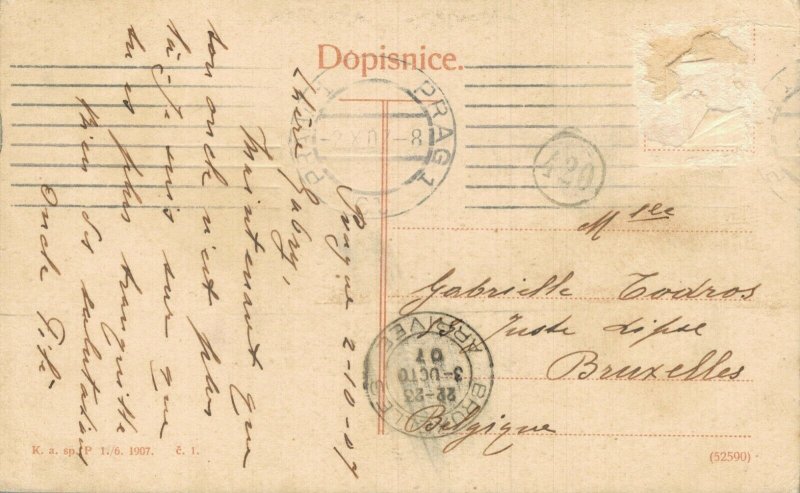 Dopisnice.
PRAG 1
PRAG 1
-2 X 07-8
420
Prague 2-10-07
Chère Gaby,
Maintenant que
ton oncle n'est plus
là, je suis sur que
tu es plus tranquille
Bien des salutations
Oncle
Mlle
Gabrielle Todros
Juste Lipse
Bruxelles
Belgique
BRUXELLES
22-23
3-OCTO
07
ARRIVEE
K. a. sp. P 1./6. 1907. č. 1.
(52590)